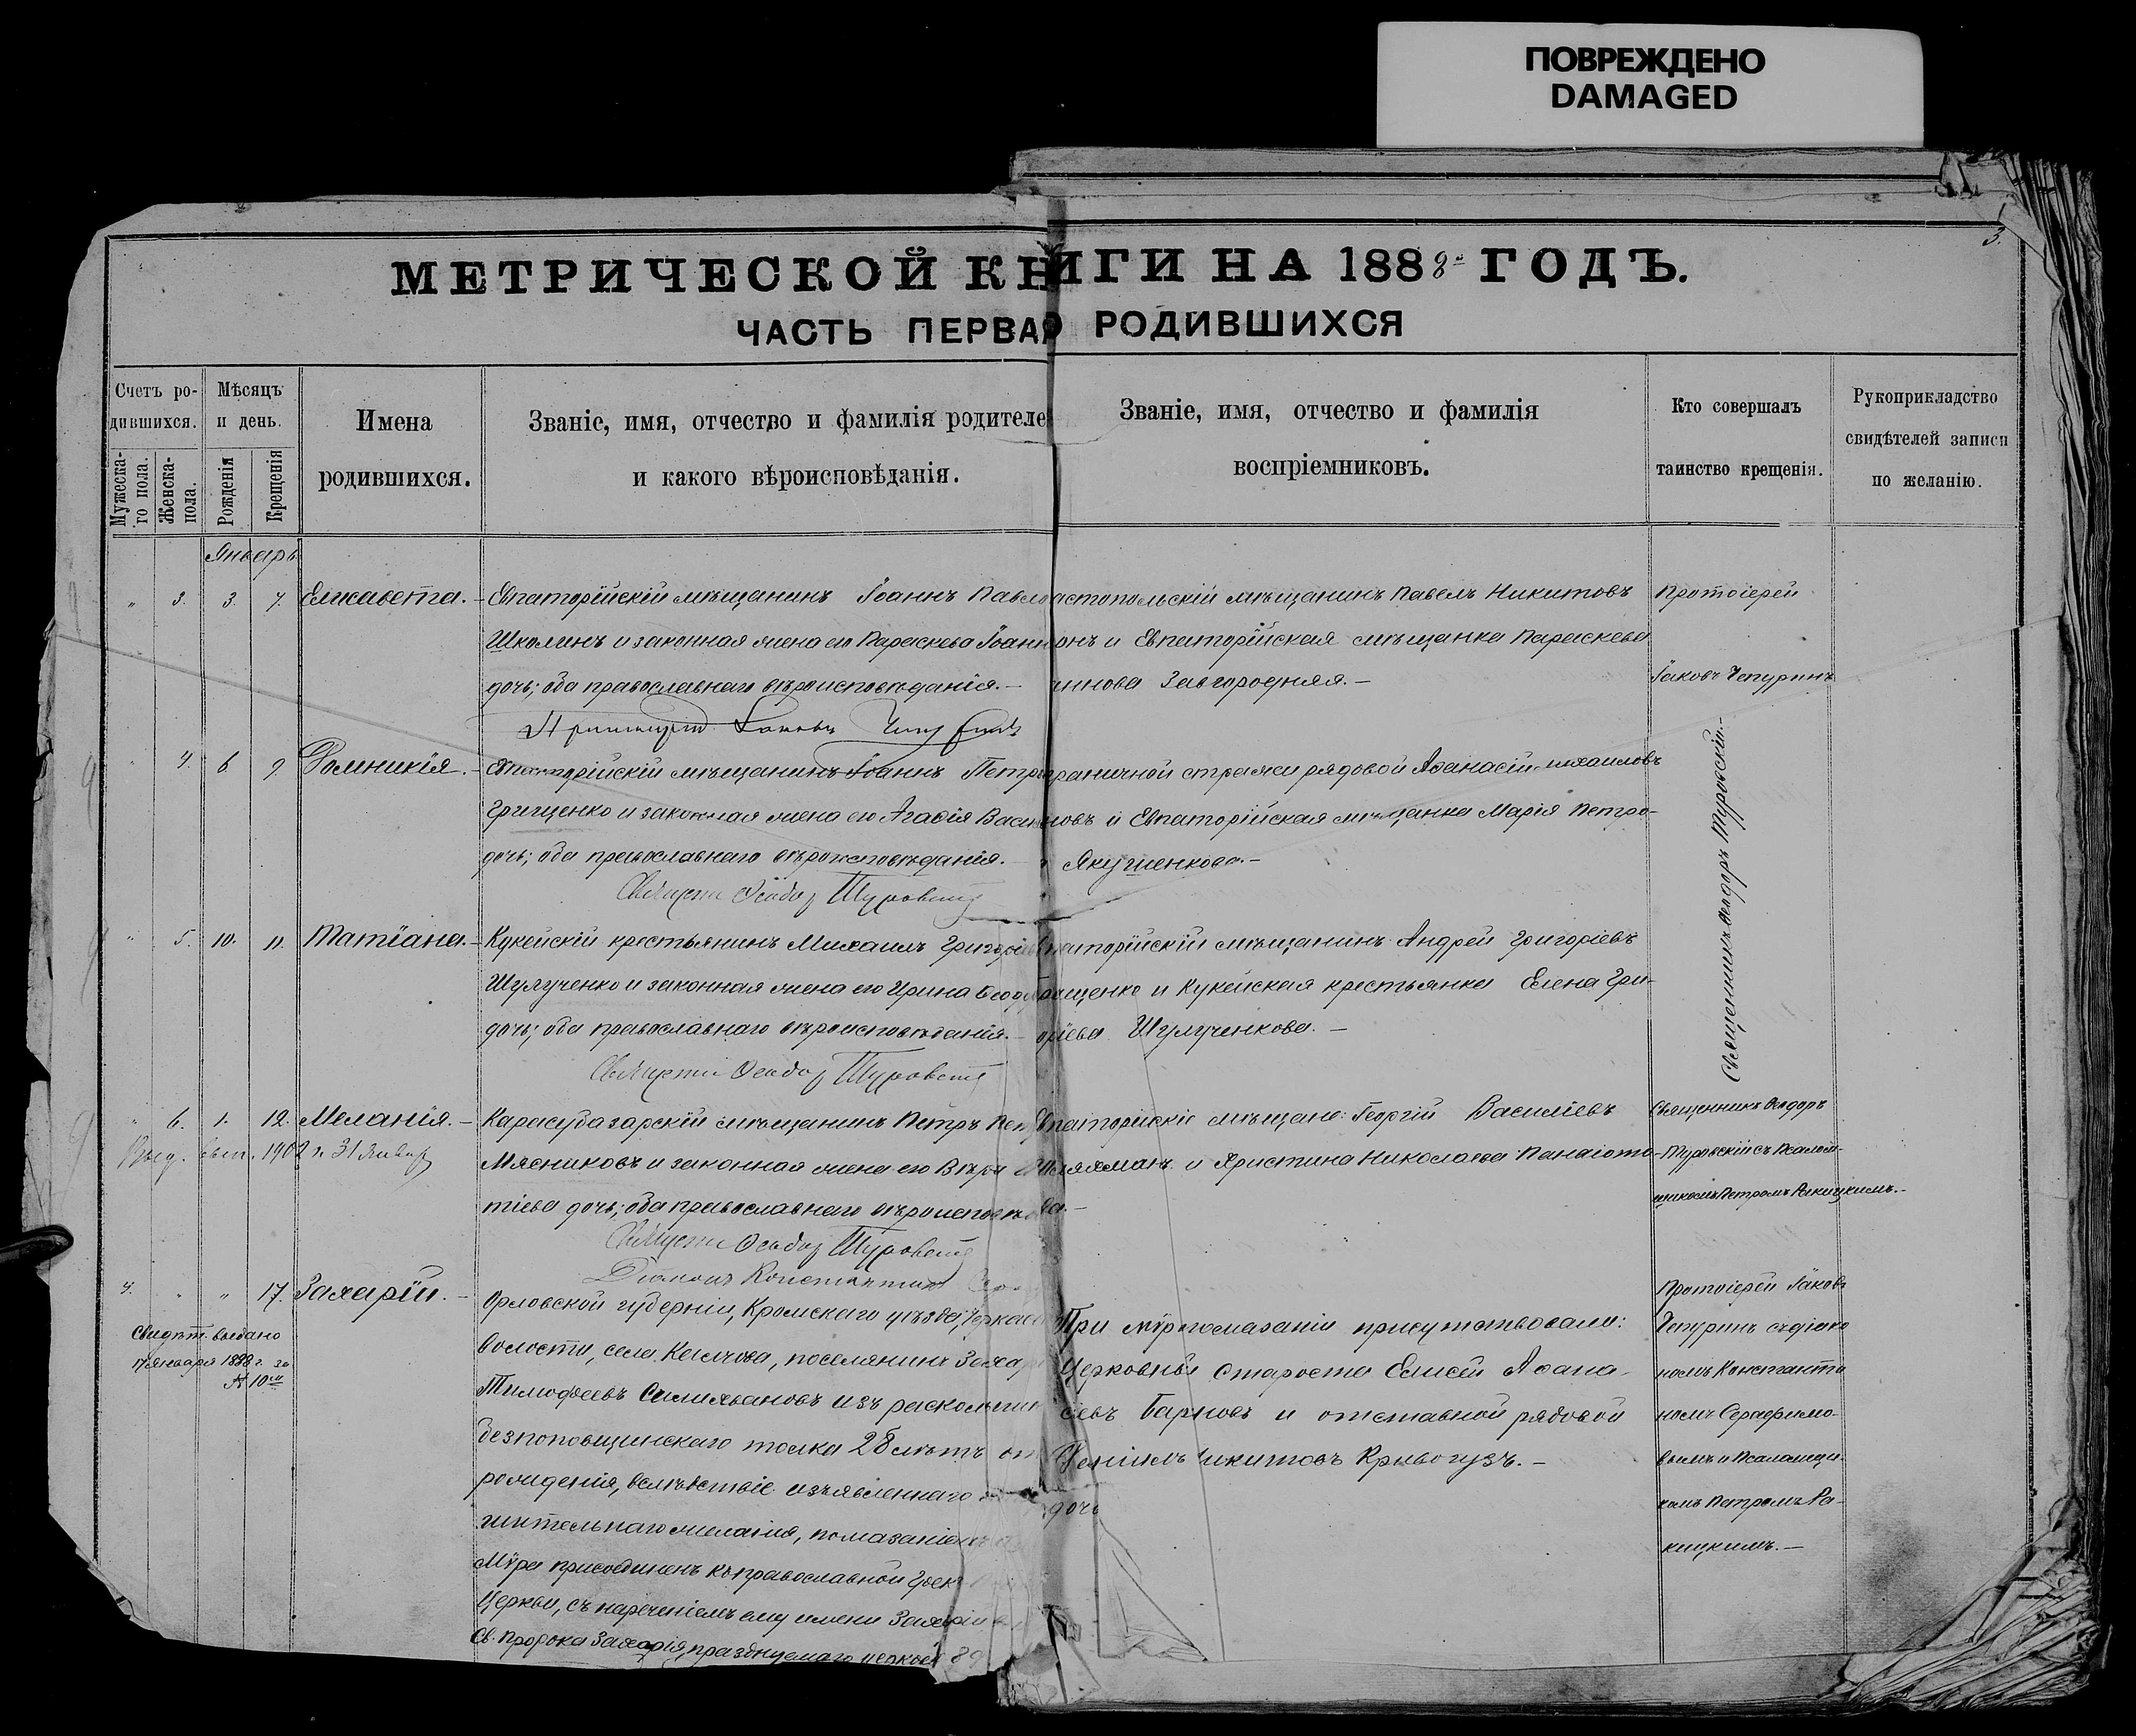 ПОВРЕЖДЕНО
DAMAGED
3.
МЕТРИЧЕСКОЙ КНИГИ НА 1888 ГОДЪ.
ЧАСТЬ ПЕРВАЯ РОДИВШИХСЯ
Счетъ ро-
дившихся.
Мужеска-
го пола.
Женска-
пола.
Мѣсяцъ
и день.
Рожденія
Крещенія
Имена
родившихся.
Званіе, имя, отчество и фамилія родителе
и какого вѣроисповѣданія.
Званіе, имя, отчество и фамилія
воспріемниковъ.
Кто совершалъ
таинство крещенія.
Рукоприкладство
свидѣтелей записи
по желанію.
Январь
„ 3. 3. 7. Елисавета. – Евпаторійскій мѣщанинъ Іоаннъ Павло
Школинъ и законная жена его Параскева Іоанн
дочь; оба православнаго вѣроисповѣданія. –
астопольскій мѣщанинъ Павелъ Никитовъ
онъ и Евпаторійская мѣщанка Параскева
Завгородняя. –
Протоіерей
Іаковъ Чепуринъ
Протоіерей Іаковъ Чепуринъ
„ 4. 6. 9. Домникія. – Евпаторійскій мѣщанинъ Іоаннъ Петро
Грищенко и законная жена его Агафія Васи
дочь; оба православнаго вѣроисповѣданія.
граничной стражи рядовой Аѳанасій Михаиловъ
новъ и Евпаторійская мѣщанка Марія Петро-
Якушенкова. –
Священникъ Ѳеодоръ Туровскій. –
Священ. Ѳеодоръ Туровскій
„ 5. 10. 11. Татіана. – Кукейскій крестьянинъ Михаилъ Григоріев
Шулученко и законная жена его Ирина Ѳеодо
дочь; оба православнаго вѣроисповѣданія. –
паторійскій мѣщанинъ Андрей Григоріевъ
ращенко и Кукейская крестьянка Елена Гри-
оріева Шулученкова. –
Священ. Ѳеодоръ Туровскій
„ 6. 1. 12. Меланія. – Карасубазарскій мѣщанинъ Петръ Пет
Мясниковъ и законная жена его Вѣра
тіева дочь; оба православнаго вѣроисповѣ
Выд. 1902 г. 31 Января
Евпаторійскіе мѣщане: Георгій Василіевъ
и Христина Николаева Панаіото-
ва. –
Священникъ Ѳеодоръ
Туровскій съ Псалом-
щикомъ Петромъ Ракицкимъ. –
Священ. Ѳеодоръ Туровскій
Діаконъ Константинъ
4. „ „ 17. Захарій. –
Свидѣт. выдано
17 Января 1888 г. за
№ 10
Орловской губерніи, Кромскаго уѣзда,
волости, села поселянинъ Захар
Тимофеевъ Силильановъ изъ раскольни
безпоповщинскаго толка 28 лѣтъ от
рожденія, вслѣдствіе изъявленнаго
жительнаго желанія, помазаніемъ
Мѵра присоединенъ къ православной Грек
Церкви, съ нареченіемъ ему имени Захарій
Св. Пророка Захарія, празднуемаго церков
При мѵропомазаніи присутствовали:
Церковный Староста Елисей Аѳана-
сіевъ и отставной рядовой
Никитовъ Кривогузъ. –
дочь
Протоіерей Іаковъ
Чепуринъ съ діако
номъ Константи
номъ Серафимо-
вымъ и Псаломщи
комъ Петромъ Ра-
кицкимъ. –